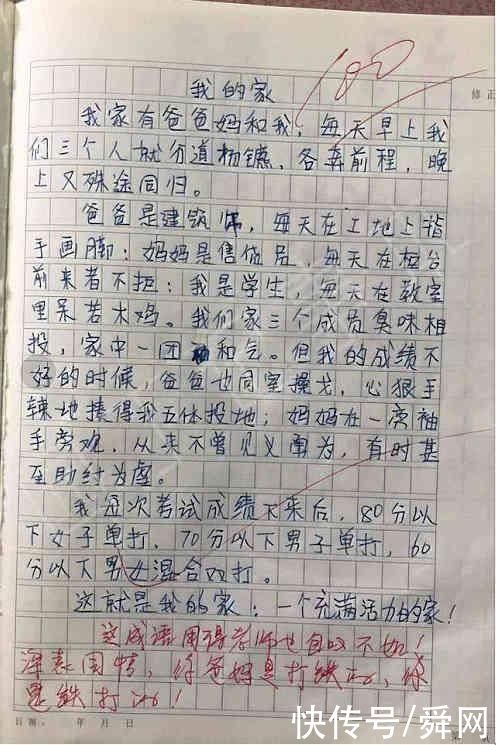 100
修正
我的家
我家有爸爸妈和我，每天早上我
们三个人就分道扬镳，各奔前程，晚
上又殊途同归。
爸爸是建筑师，每天在工地上指
手画脚；妈妈是售货员，每天在柜台
前来者不拒；我是学生，每天在教室
里呆若木鸡。我们家三个成员臭味相
投，家中一团和气。但我的成绩不
好的时候，爸爸也同室操戈，心狠手
辣地揍得我五体投地；妈妈在一旁袖
手旁观，从来不曾见义勇为，有时甚
至助纣为虐。
我每次考试成绩下来后，80分以
下女子单打，70分以下男子单打，60
分以下男女混合双打。
这就是我的家：一个充满活力的家！
这成语用得老师也自叹不如！
深表同情，你爸妈是打铁的，你
是铁打的！
日期： 年 月 日
快传号/舜网